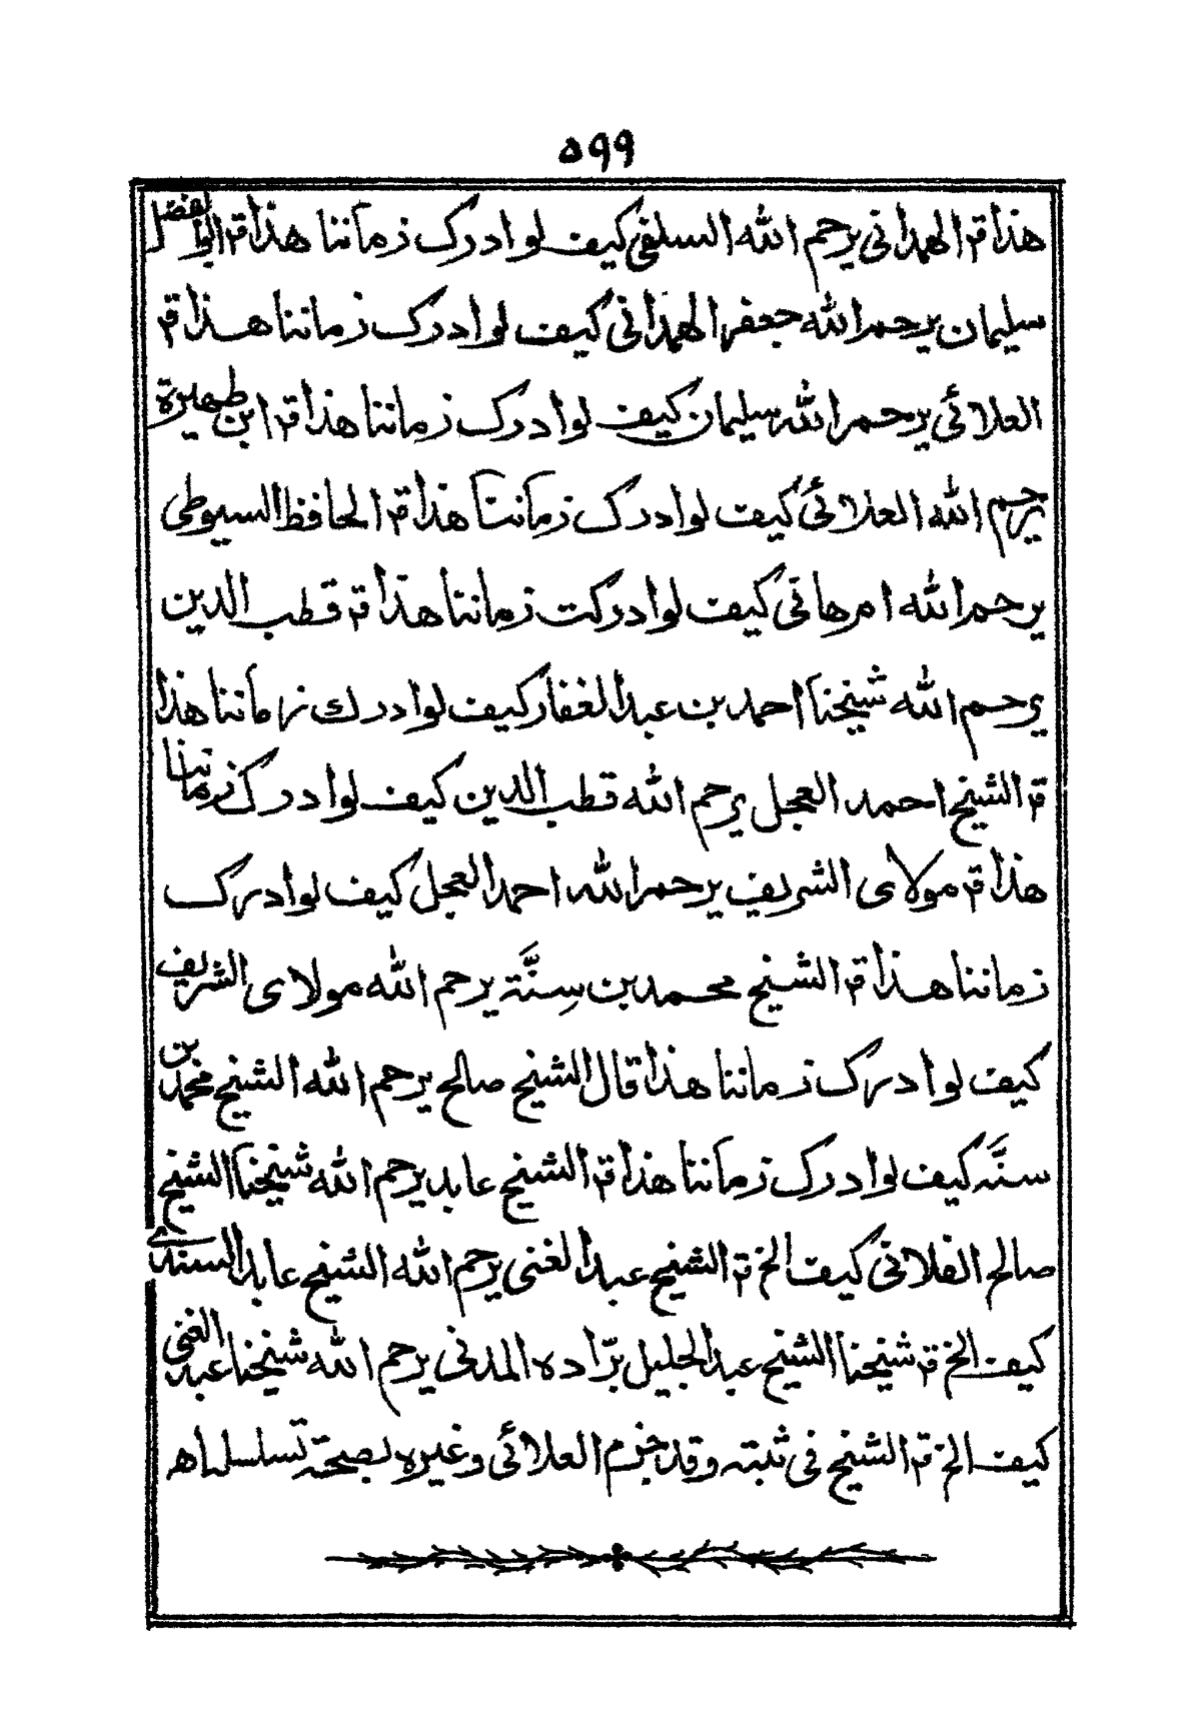 ٥٩٩
هذا قم الهمدانی یرحم الله السلفی کیف لو ادرک زماننا هذا قم ابوالفضل
سلیمان یرحم الله جعفر الهمدانی کیف لو ادرک زماننا هذا قم
العلائی یرحم الله سلیمان کیف لو ادرک زماننا هذا قم ابن ظهیرة
یرحم الله العلائی کیف لو ادرک زماننا هذا قم الحافظ السیوطی
یرحم الله ام هانی کیف لو ادرکت زماننا هذا قم قطب الدین
یرحم الله شیخنا احمد بن عبد الغفار کیف لو ادرك زماننا هذا
قم الشیخ احمد العجل یرحم الله قطب الدین کیف لو ادرک زماننا
هذا قم مولای الشریف یرحم الله احمد العجل کیف لو ادرک
زماننا هذا قم الشیخ محمد بن سِنَّة یرحم الله مولای الشریف
کیف لو ادرک زماننا هذا قال الشیخ صالح یرحم الله الشیخ محمد بن
سنَّه کیف لو ادرک زماننا هذا قم الشیخ عابد یرحم الله شیخنا الشیخ
صالح الفلانی کیف الخ قم الشیخ عبد الغنی یرحم الله الشیخ عابد السندی
کیف الخ قم شیخنا الشیخ عبد الجلیل برّاده المدنی یرحم الله شیخنا عبد الغنی
کیف الخ قم الشیخ فی ثبته وقد جزم العلائی وغیره بصحة تسلسله اه